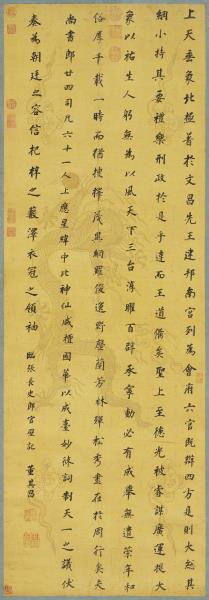 上天垂象北極著於文昌先王建邦南宮列為會府六官既辯四方是則大總其
綱小持其要禮樂刑政於是乎達而王道備矣聖上至德光被睿謀廣運提大
象以祐生人躬無為以風天下三台淳曜百辟承寧動必有成舉無遺策年和
俗厚千載一時而猶搜擇茂異網羅俊逸野罄蘭芳林殫松秀盡在於周行矣夫
尚書郎廿四司凡六十一人上應星緯中比神仙咸擅國華以成臺妙修詞制天一之議伏
奏為朝廷之容信杞梓之藪澤衣冠之領袖 臨張長史郎官壁記 董其昌